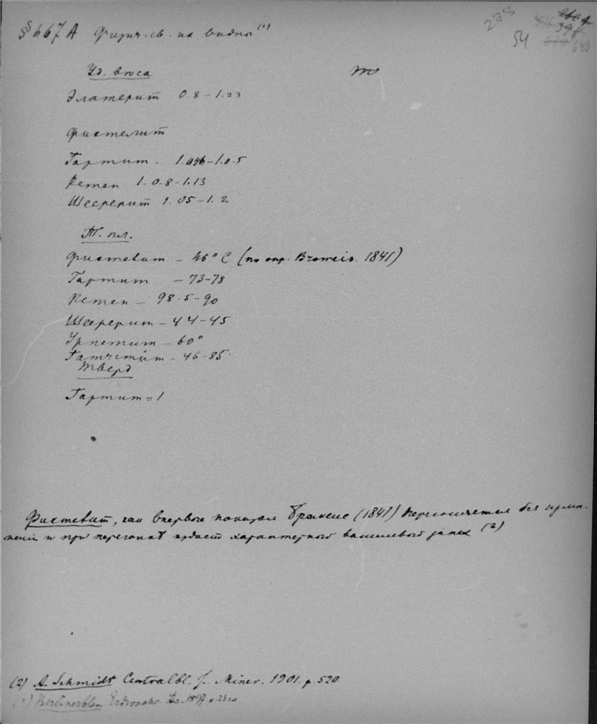 §§ 667 А Физич. св. на видны (1)
54
Уд. веса
Элатерит 0.8 – 1.23
Фихтелит
Гартит. 1.046 – 1.05
Кетен 1.08 – 1.13
Шеерерит 1.05 – 1.2
Т. пл.
Фихтелит – 46° С (по опр. Bromeis. 1841)
Гартит – 73–78
Кетен – 98.5 – 90
Шеерерит – 44–45
Урпетит – 60°
Гатчетит – 46–85
Тверд
Гартит = 1
Фихтелит, как впервые показал Бромейс (1841) перегоняется без
и при перегонке издает характерный запах (2)
(2) A. Schmidt Centralbl. f. Miner. 1901. p. 520.